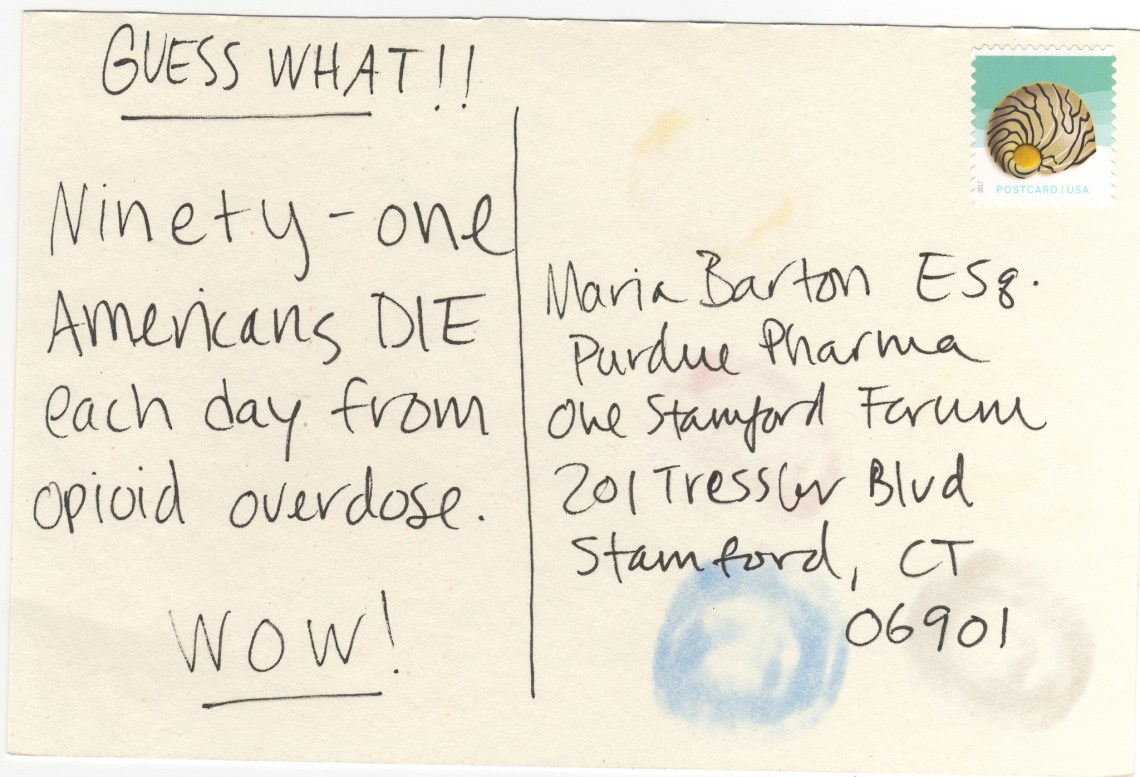 GUESS WHAT!!
Ninety-one
Americans DIE
each day from
opioid overdose.
WOW!
2017
POSTCARD | USA
Maria Barton Esq.
Purdue Pharma
One Stamford Forum
201 Tresser Blvd
Stamford, CT
06901